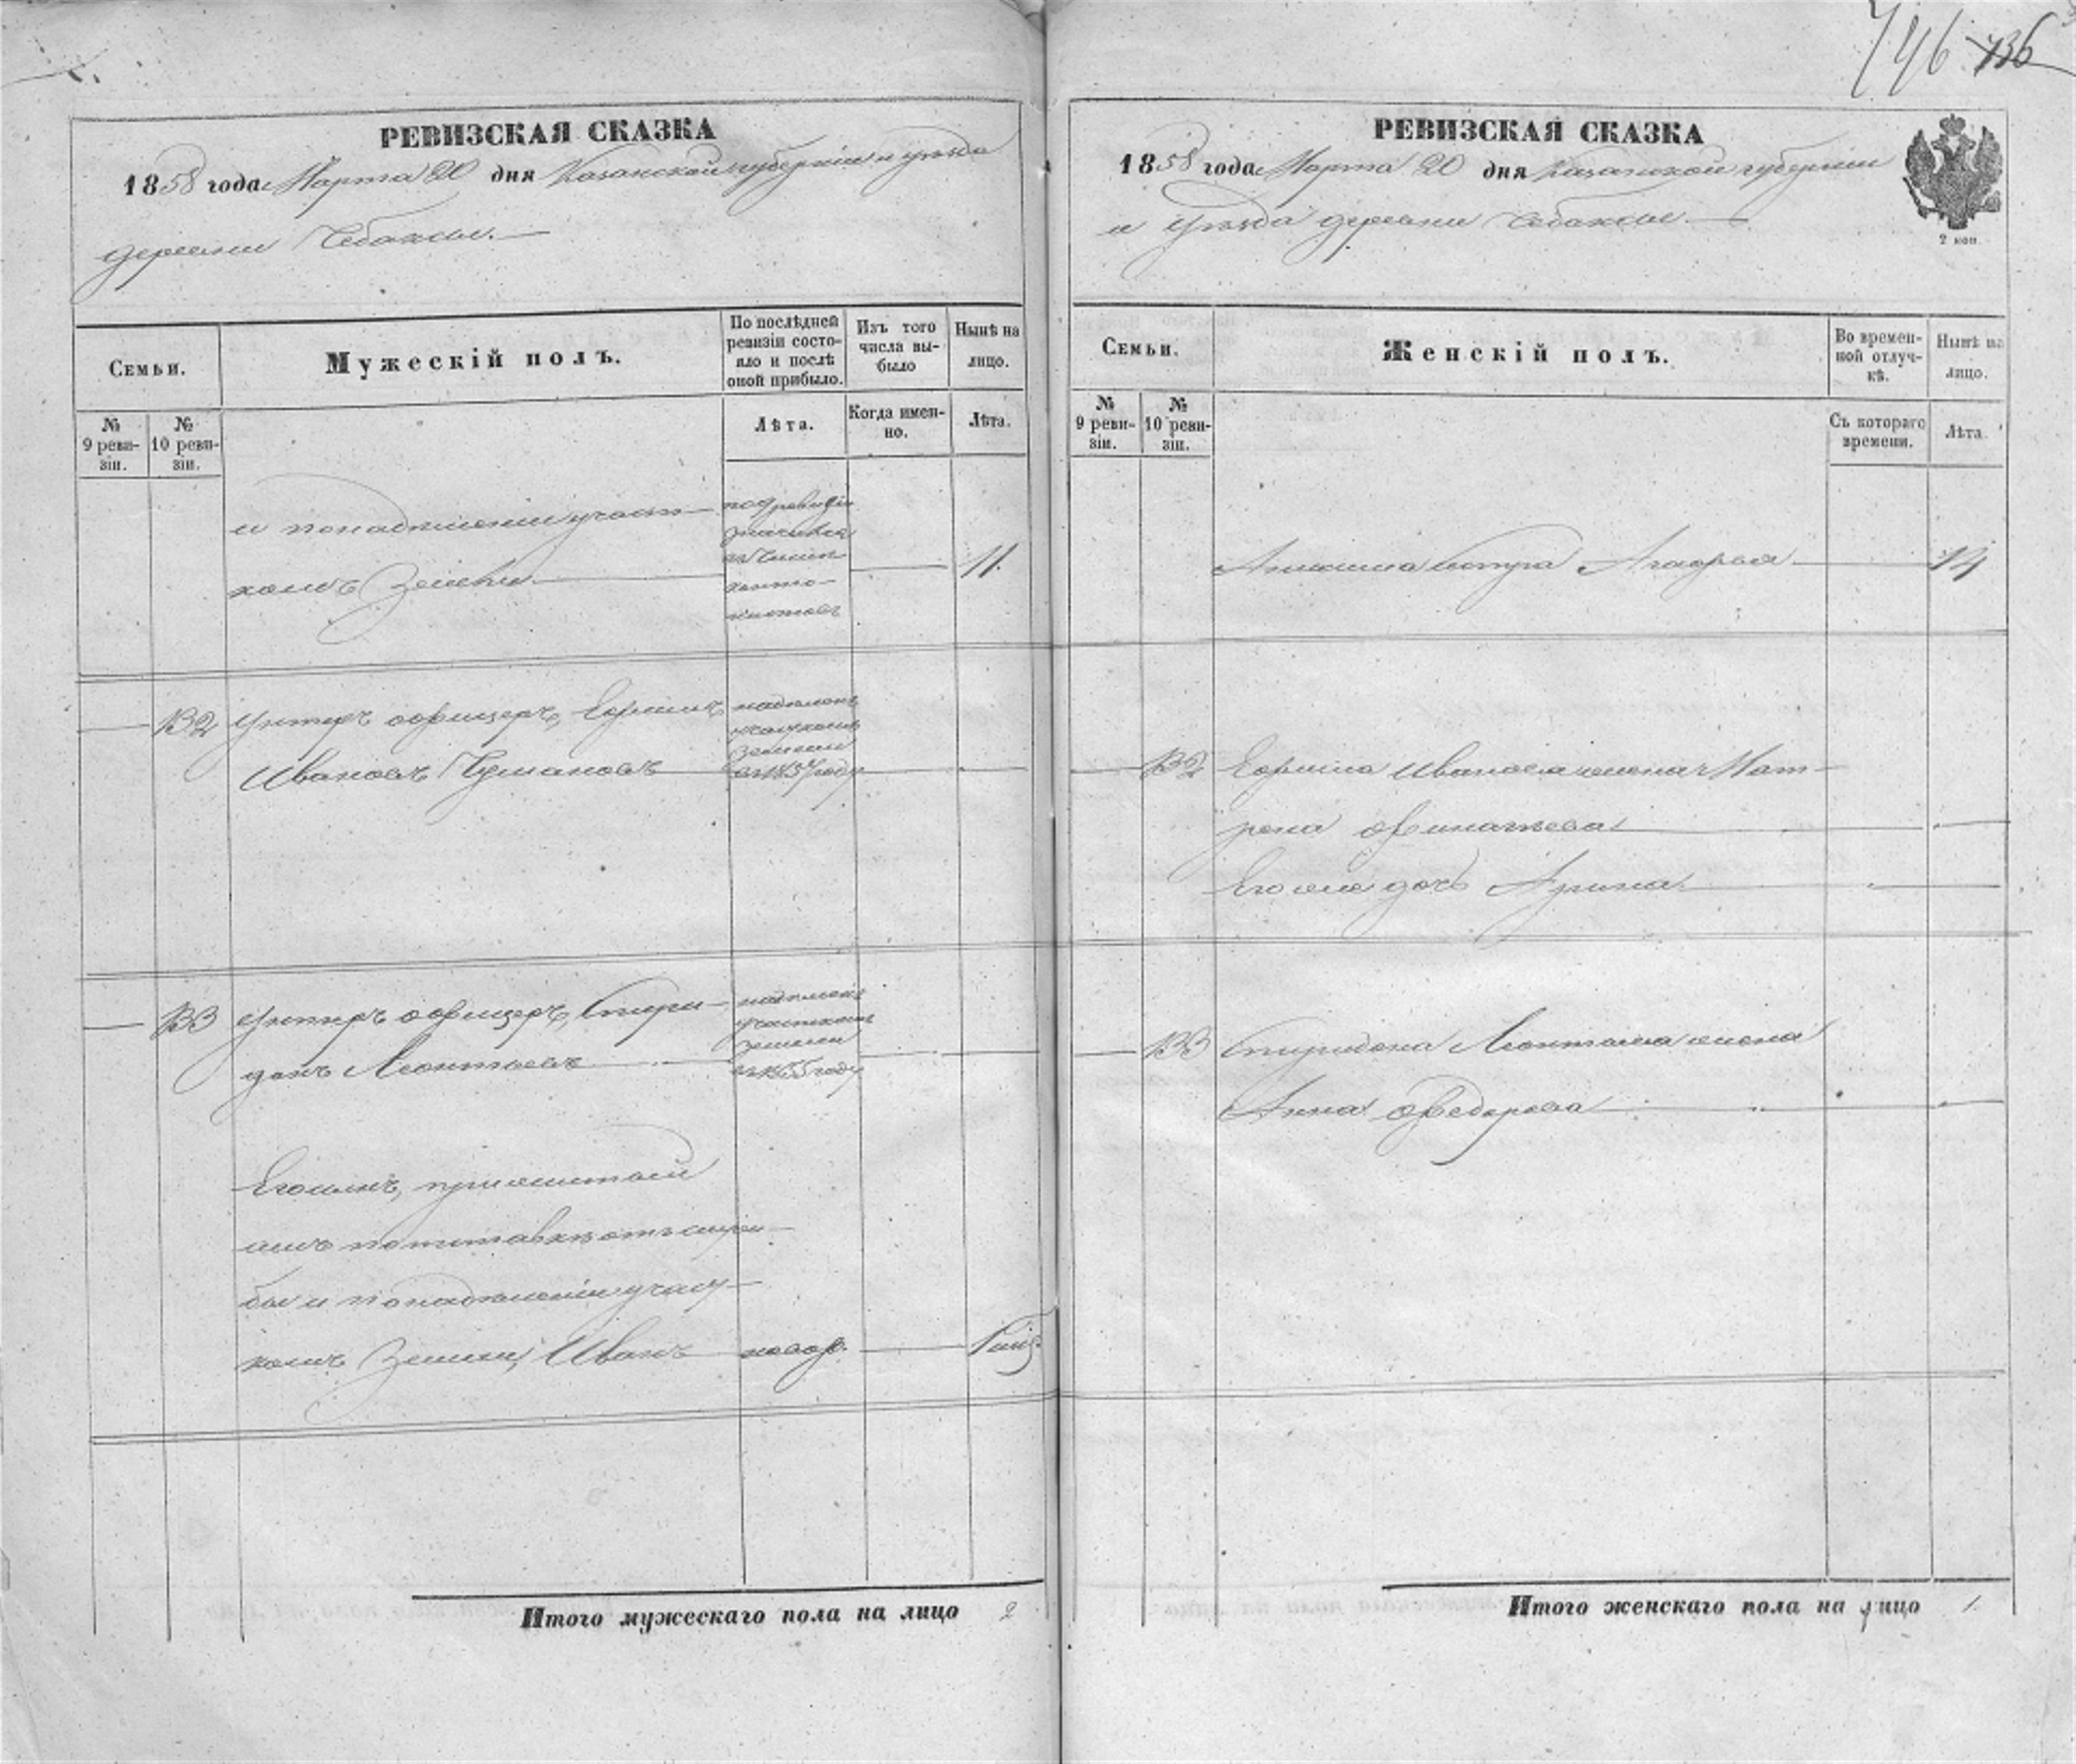 746 136
РЕВИЗСКАЯ СКАЗКА
1858 года Марта 20 дня Казанской губернии и уѣзда
деревни Чебаксы.
Семьи.
Мужескій полъ.
По послѣдней ревизіи состо-
яло и послѣ
оной прибыло.
Изъ того
числа вы-
было
Нынѣ на
лицо.
№
9 реви-
зіи.
№
10 реви-
зіи.
Лѣта.
Когда имен-
но.
Лѣта.
и понадѣленіи участ-
комъ земли
11.
132 Унтеръ офицеръ, Ефимъ
Ивановъ
надѣленъ
участкомъ
земли
въ 1857 году
133 Унтеръ офицеръ, Спири-
донъ Леонтьевъ
надѣленъ
участкомъ
земли
въ 1855 году
Его сынъ, прижитой
имъ по отставкѣ отъ служ-
бы и понадѣленіи участ-
комъ земли, Иванъ
новор.
Итого мужескаго пола на лицо 2
РЕВИЗСКАЯ СКАЗКА
1858 года Марта 20 дня Казанской губерніи
и уѣзда деревни Чебаксы.
2 коп.
Семьи.
Женскій полъ.
Во времен-
ной отлуч-
кѣ.
Нынѣ на
лицо.
№
9 реви-
зіи.
№
10 реви-
зіи.
Съ котораго
времени.
Лѣта.
сестра
14
132 Ефима Иванова жена Мат-
рена
Его же дочь Арина
133 Спиридона Леонтьева жена
Анна Федорова
Итого женскаго пола на лицо 1.